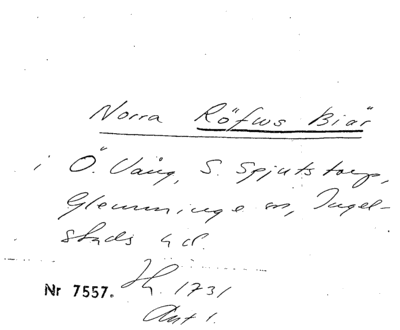 Norra Röfws Biär
i Ö. Vång, S. Spjutstorp,
Glemminge sn, Ingel-
stads hd.
Nr 7557. Jb. 1731
Akt 1.